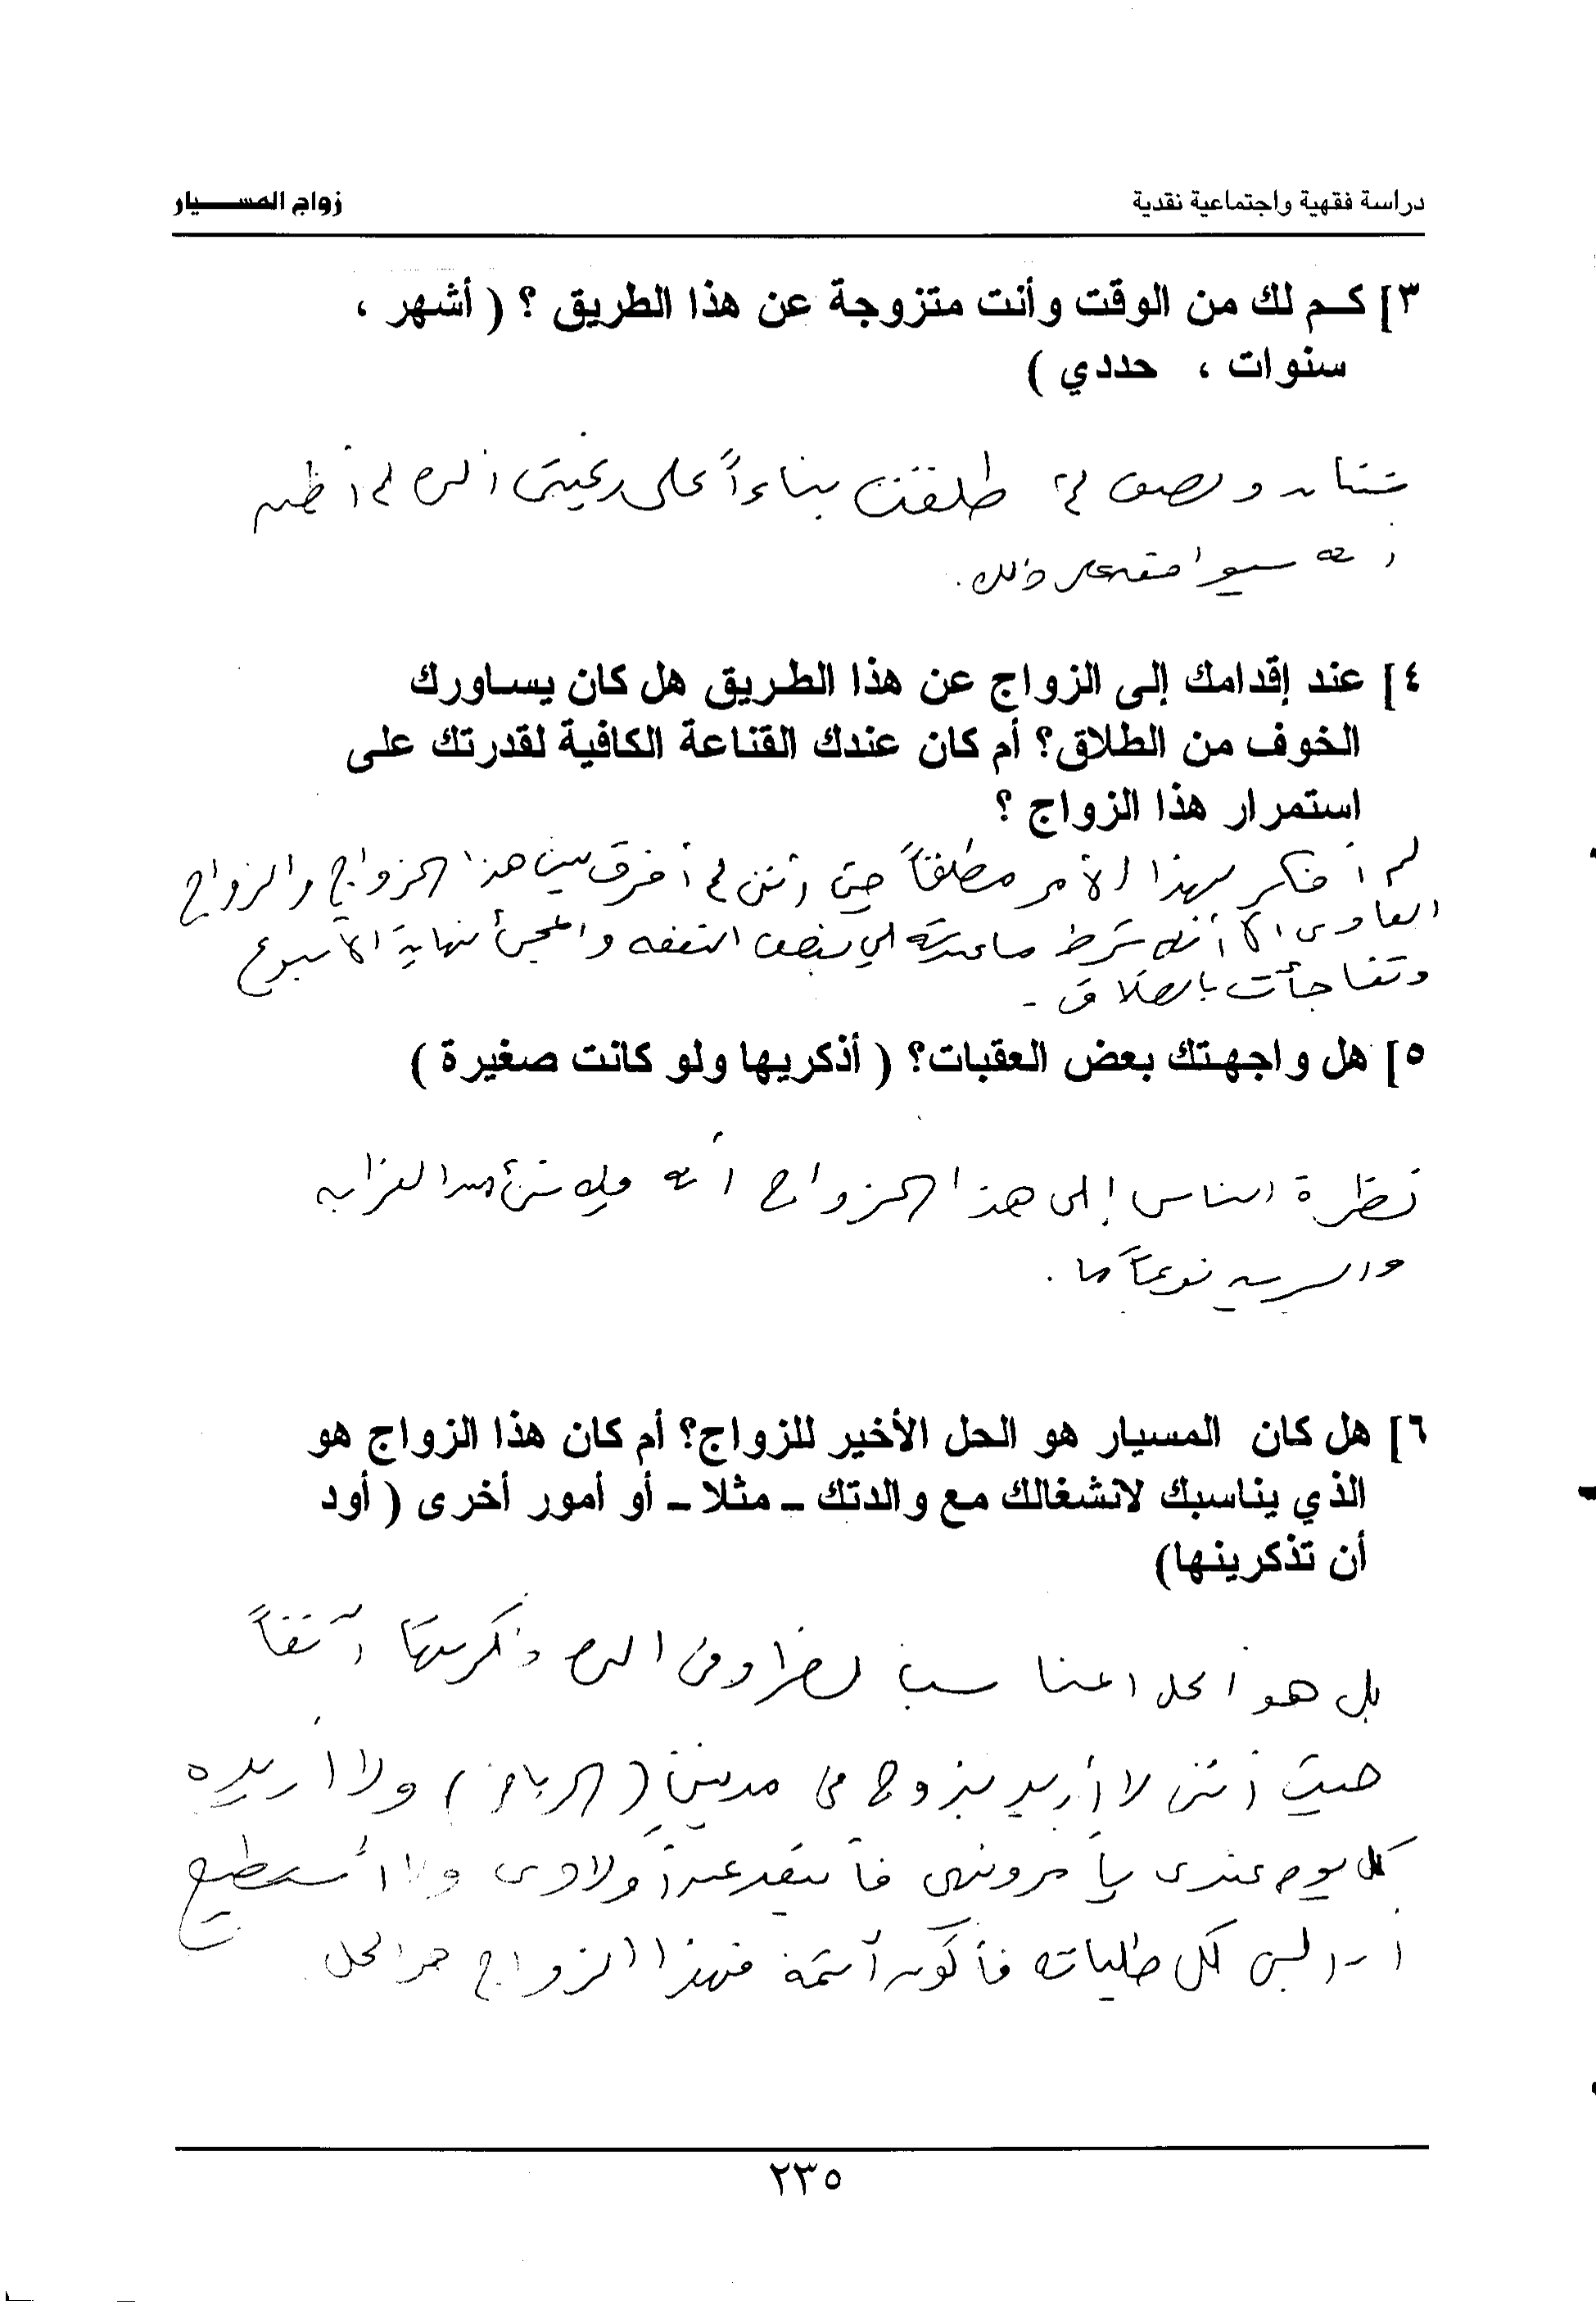 دراسة فقهية واجتماعية نقدية
زواج المسيار
٣] كم لك من الوقت وأنت متزوجة عن هذا الطريق ؟ ( أشهر ،
سنوات ، حددي )
سنتان ونصف ثم طلقت بناءاً على رغبتي الذي لم أظن
انه سيوافق على ذلك .
٤] عند إقدامك إلى الزواج عن هذا الطريق هل كان يساورك
الخوف من الطلاق؟ أم كان عندك القناعة الكافية لقدرتك على
استمرار هذا الزواج ؟
لم أفكر بهذا الأمر مطلقاً حتى أنني لم أفرق بين هذا الزواج والزواج
العادي الا أنه شرط النفقه والمجئ نهاية الأسبوع
وتفاجأت بالطلاق -
٥] هل واجهتك بعض العقبات؟ ( أذكريها ولو كانت صغيرة )
نظرة الناس إلى هذا الزواج أنه فيه شئ من الغرابه
والسريه نوعاً ما .
٦] هل كان المسيار هو الحل الأخير للزواج؟ أم كان هذا الزواج هو
الذي يناسبك لانشغالك مع والدتك - مثلا - أو أمور أخرى ( أود
أن تذكرينها)
بل هو الحل المناسب لظروفي التي ذكرتها آنفاً
حيث أنني لا أريد بزوج في مدينتي ( الرياض ) ولا أريده
كل يوم عندي يأمر وينهى فأبتعد عن أولادي ولا أستطيع
أن ألبي كل طلباته فأكون آثمة فهذا الزواج هو الحل
٢٣٥